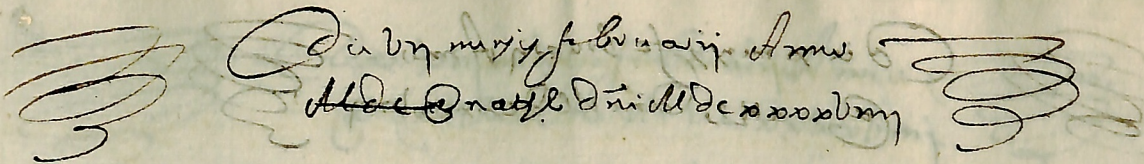 Die vij mensis februarii Anno
a nat. dñi Mdcxxxxviiij